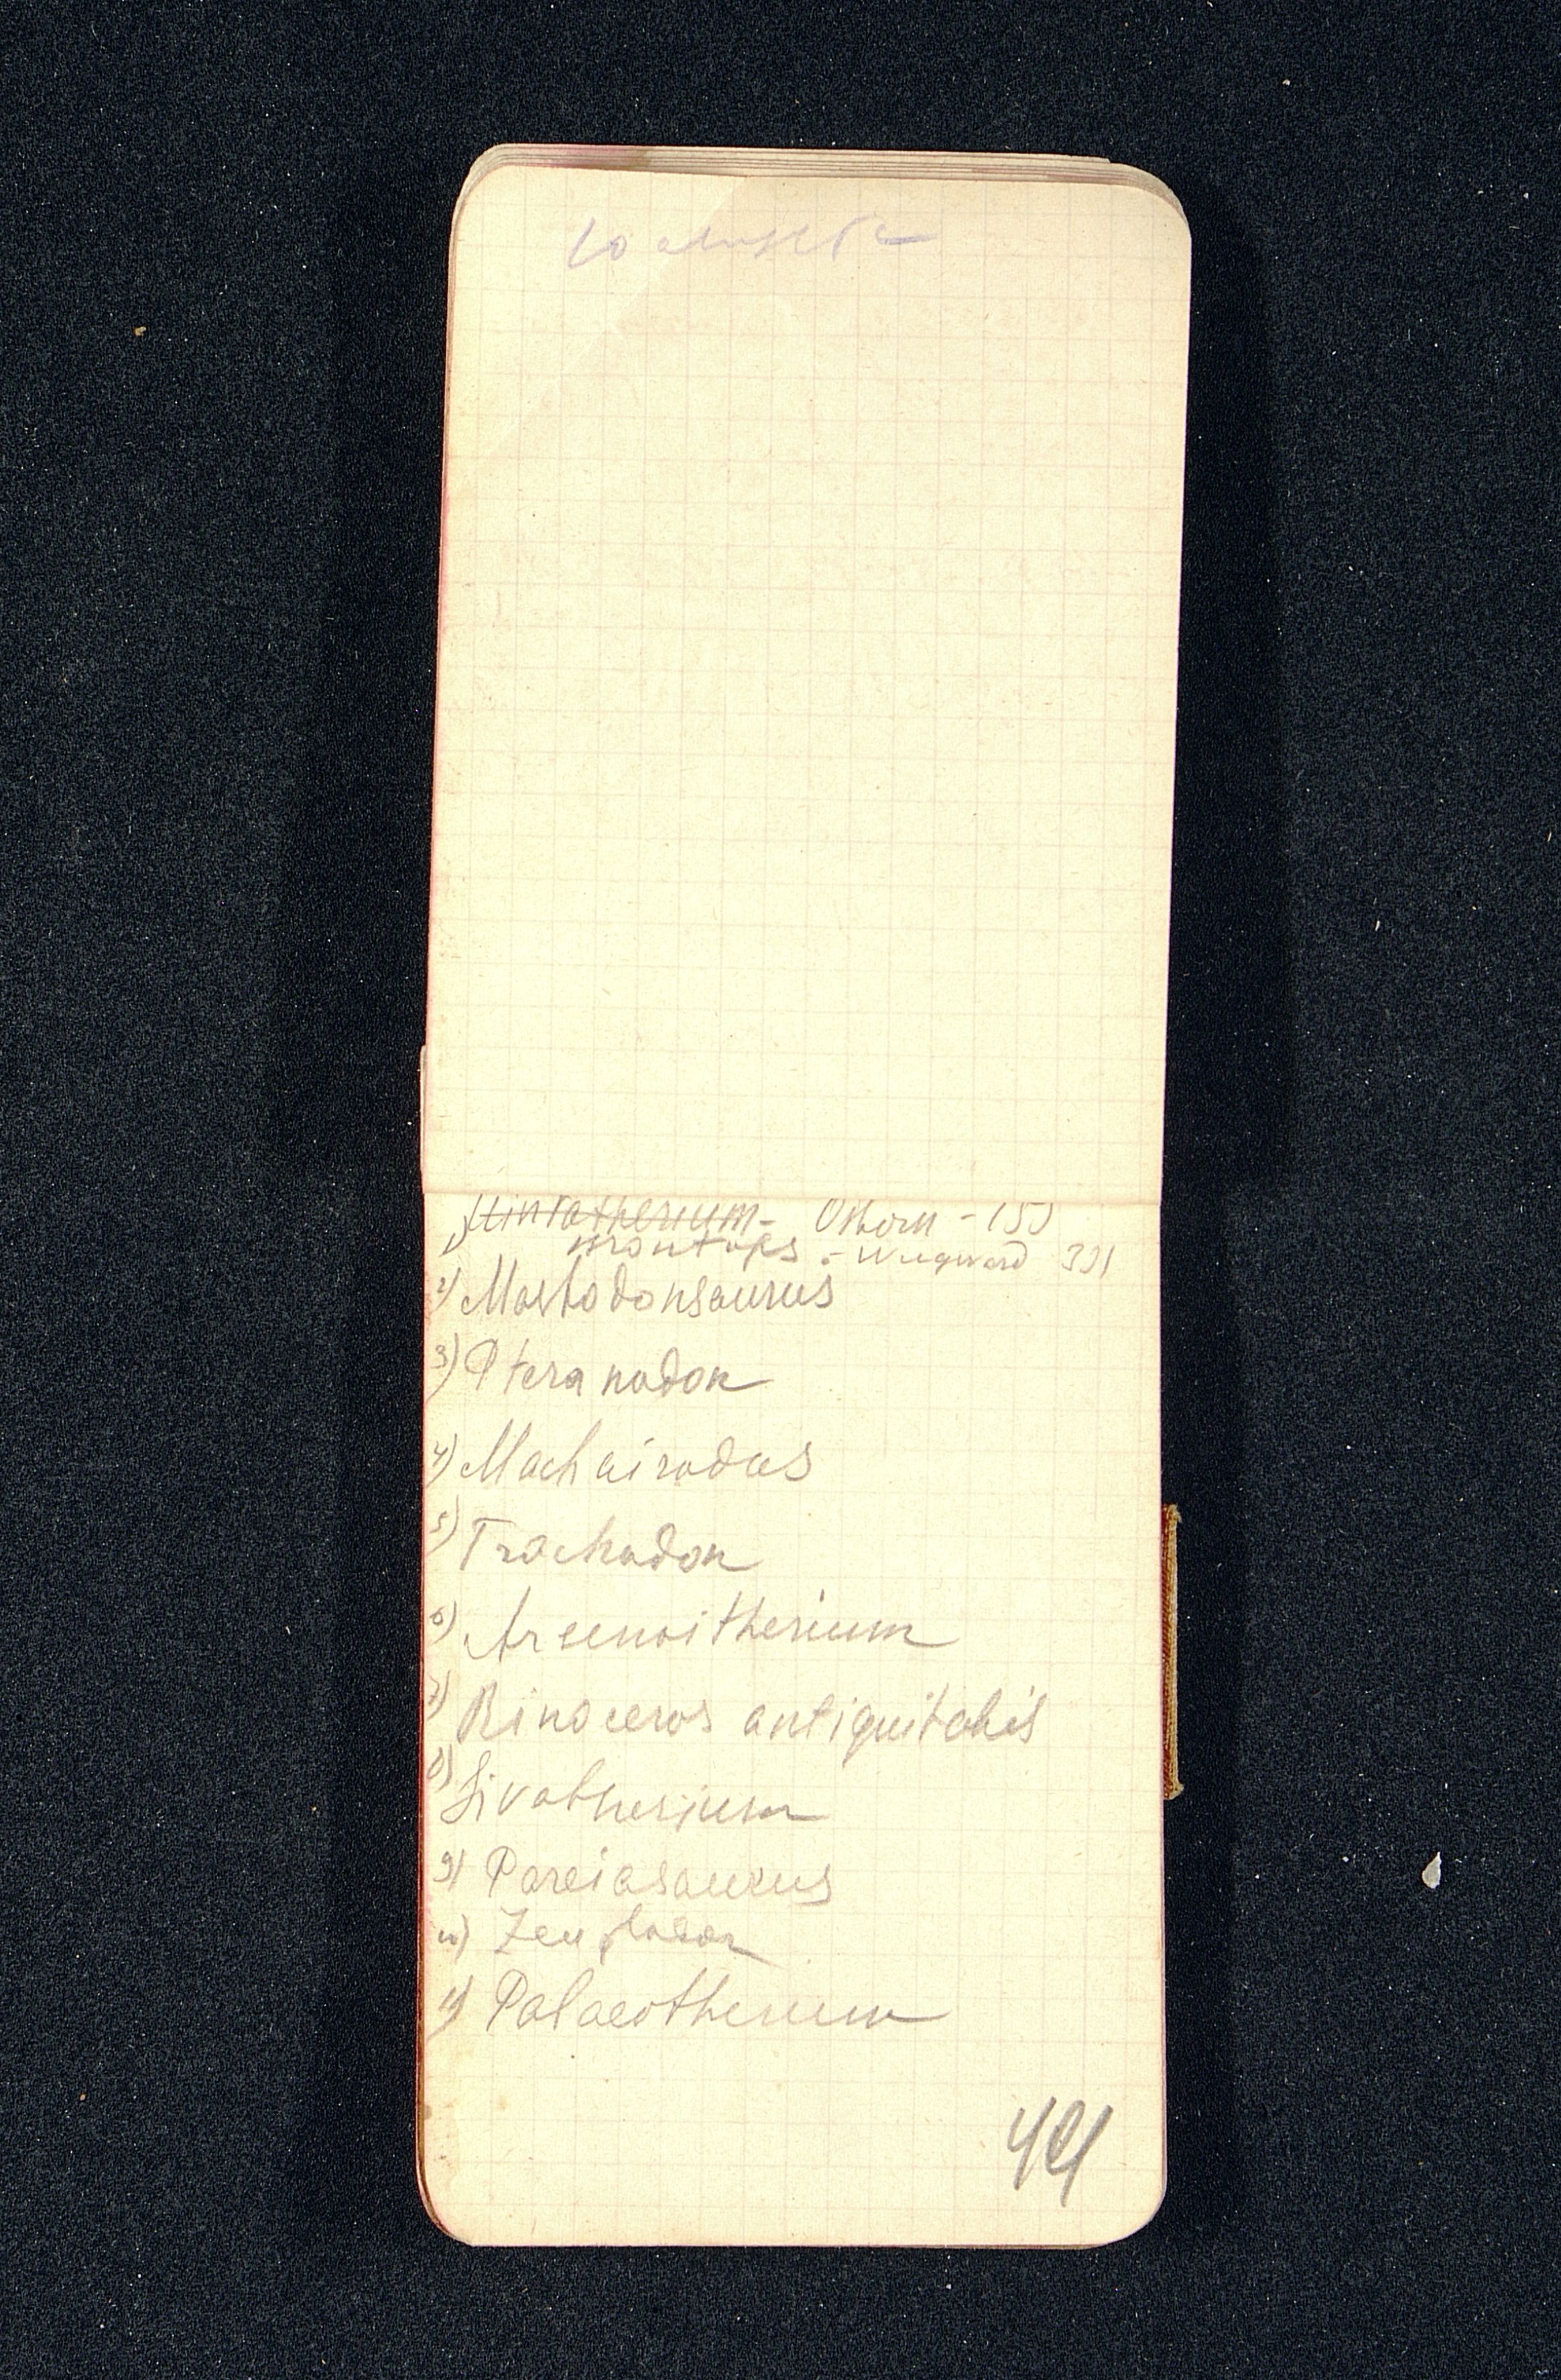 1) Uintatherium - Osborn - 155
2) Mastodonsaurus
3) Pteranodon
4) Machairodus
5) Trachodon
6) Arsenoitherium
7) Rinoceros antiquitatis
8) Sivatherium
9) Pareiasaurus
10) Zeuglodon
11) Palaeotherium